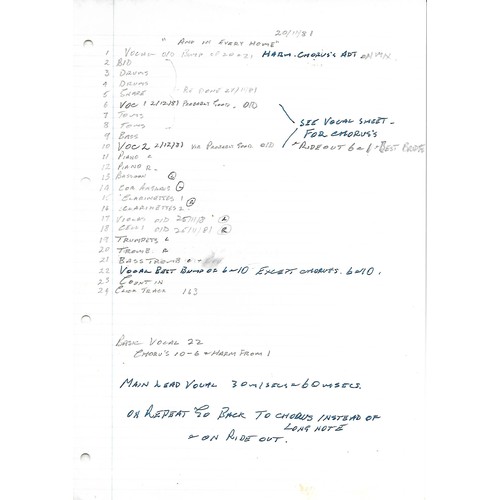 20/11/81
" AND IN EVERY HOME"
1 VOCAL OLD BUMP OF 20+21 HARM. CHORUS'S ADT ON VMN
2 BID
3 DRUMS
4 DRUMS
5 SNARE RE DONE 25/11/81
6 VOC 1 2/12/81 O/D
7 TOMS
8 TOMS
9 BASS
10 VOC 2 2/12/81 O/D
SEE VOCAL SHEET -
FOR CHORUS'S
+ RIDEOUT 6 + 1 BEST
11 PIANO L
12 PIANO R
13 BASSOON
14 COR ANGLAIS
15 CLARINETTES 1
16 CLARINETTES 2
17 VIOLAS O/D 25/11/81 L
18 CELLI O/D 25/11/81 R
19 TRUMPETS L
20 TROMB R
21 BASS TROMB
22 VOCAL BEST BUMP OF 6+10 EXCEPT CHORUS. 6+10.
23 COUNT IN
24 CLICK TRACK 163
BASIC VOCAL 22
CHORUS 10-6 + HARM FROM 1
MAIN LEAD VOCAL 30 M/SECS + 60 M/SECS.
ON REPEAT GO BACK TO CHORUS INSTEAD OF
LONG NOTE
+ ON RIDE OUT.